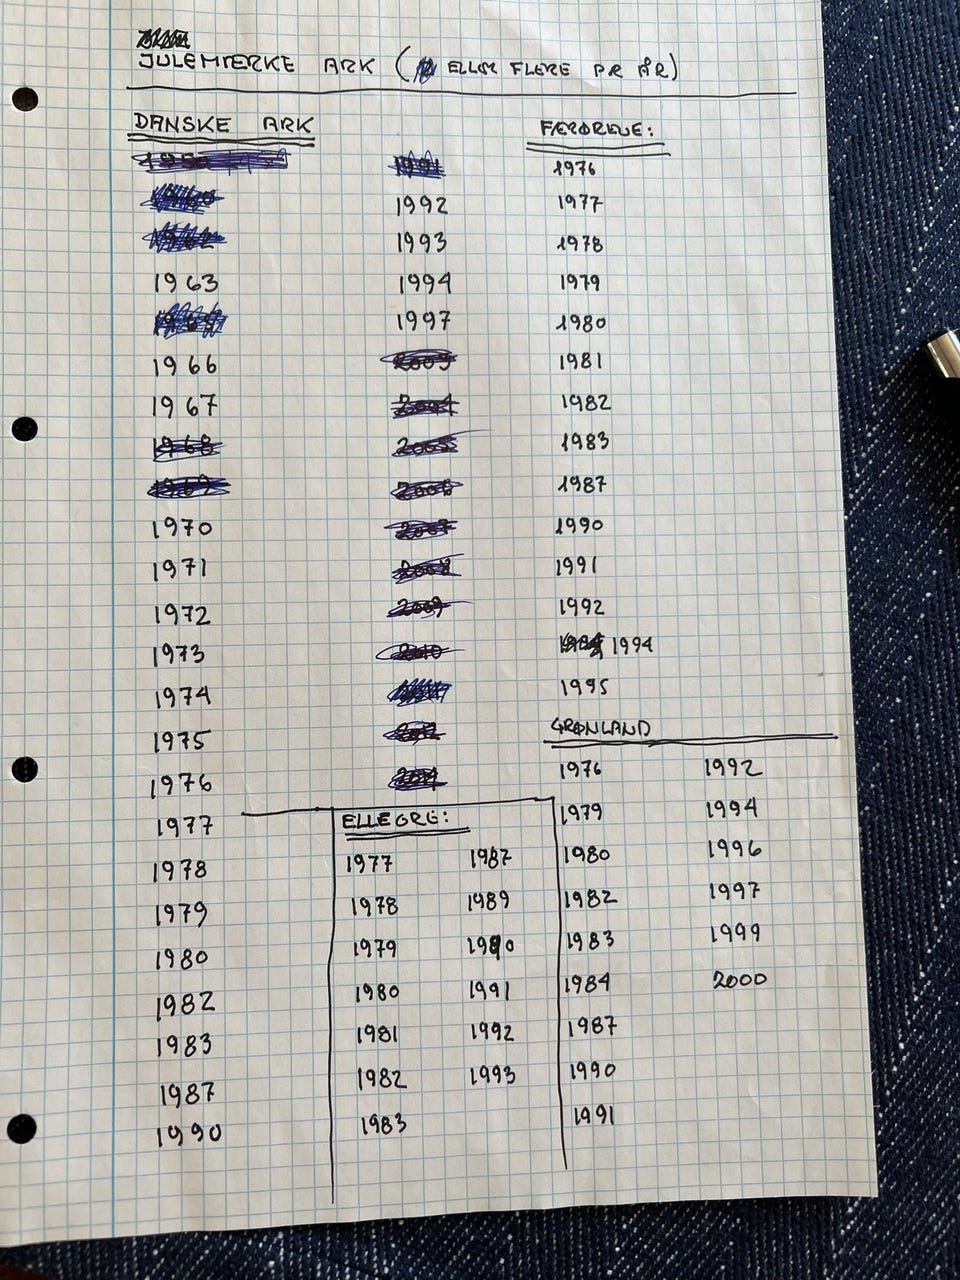 JULEMÆRKE ARK ( ELLER FLERE PR ÅR)
DANSKE ARK
1963
1966
1967
1968
1969
1970
1971
1972
1973
1974
1975
1976
1977
1978
1979
1980
1982
1983
1987
1990
1991
1992
1993
1994
1997
2003
2004
2005
2006
2007
2008
2009
2010
FÆRØRENE:
1976
1977
1978
1979
1980
1981
1982
1983
1987
1990
1991
1992
1994
1995
GRØNLAND
1976 1992
1979 1994
1980 1996
1982 1997
1983 1999
1984 2000
1987
1990
1991
ELLEGRE:
1977 1987
1978 1989
1979 1990
1980 1991
1981 1992
1982 1993
1983